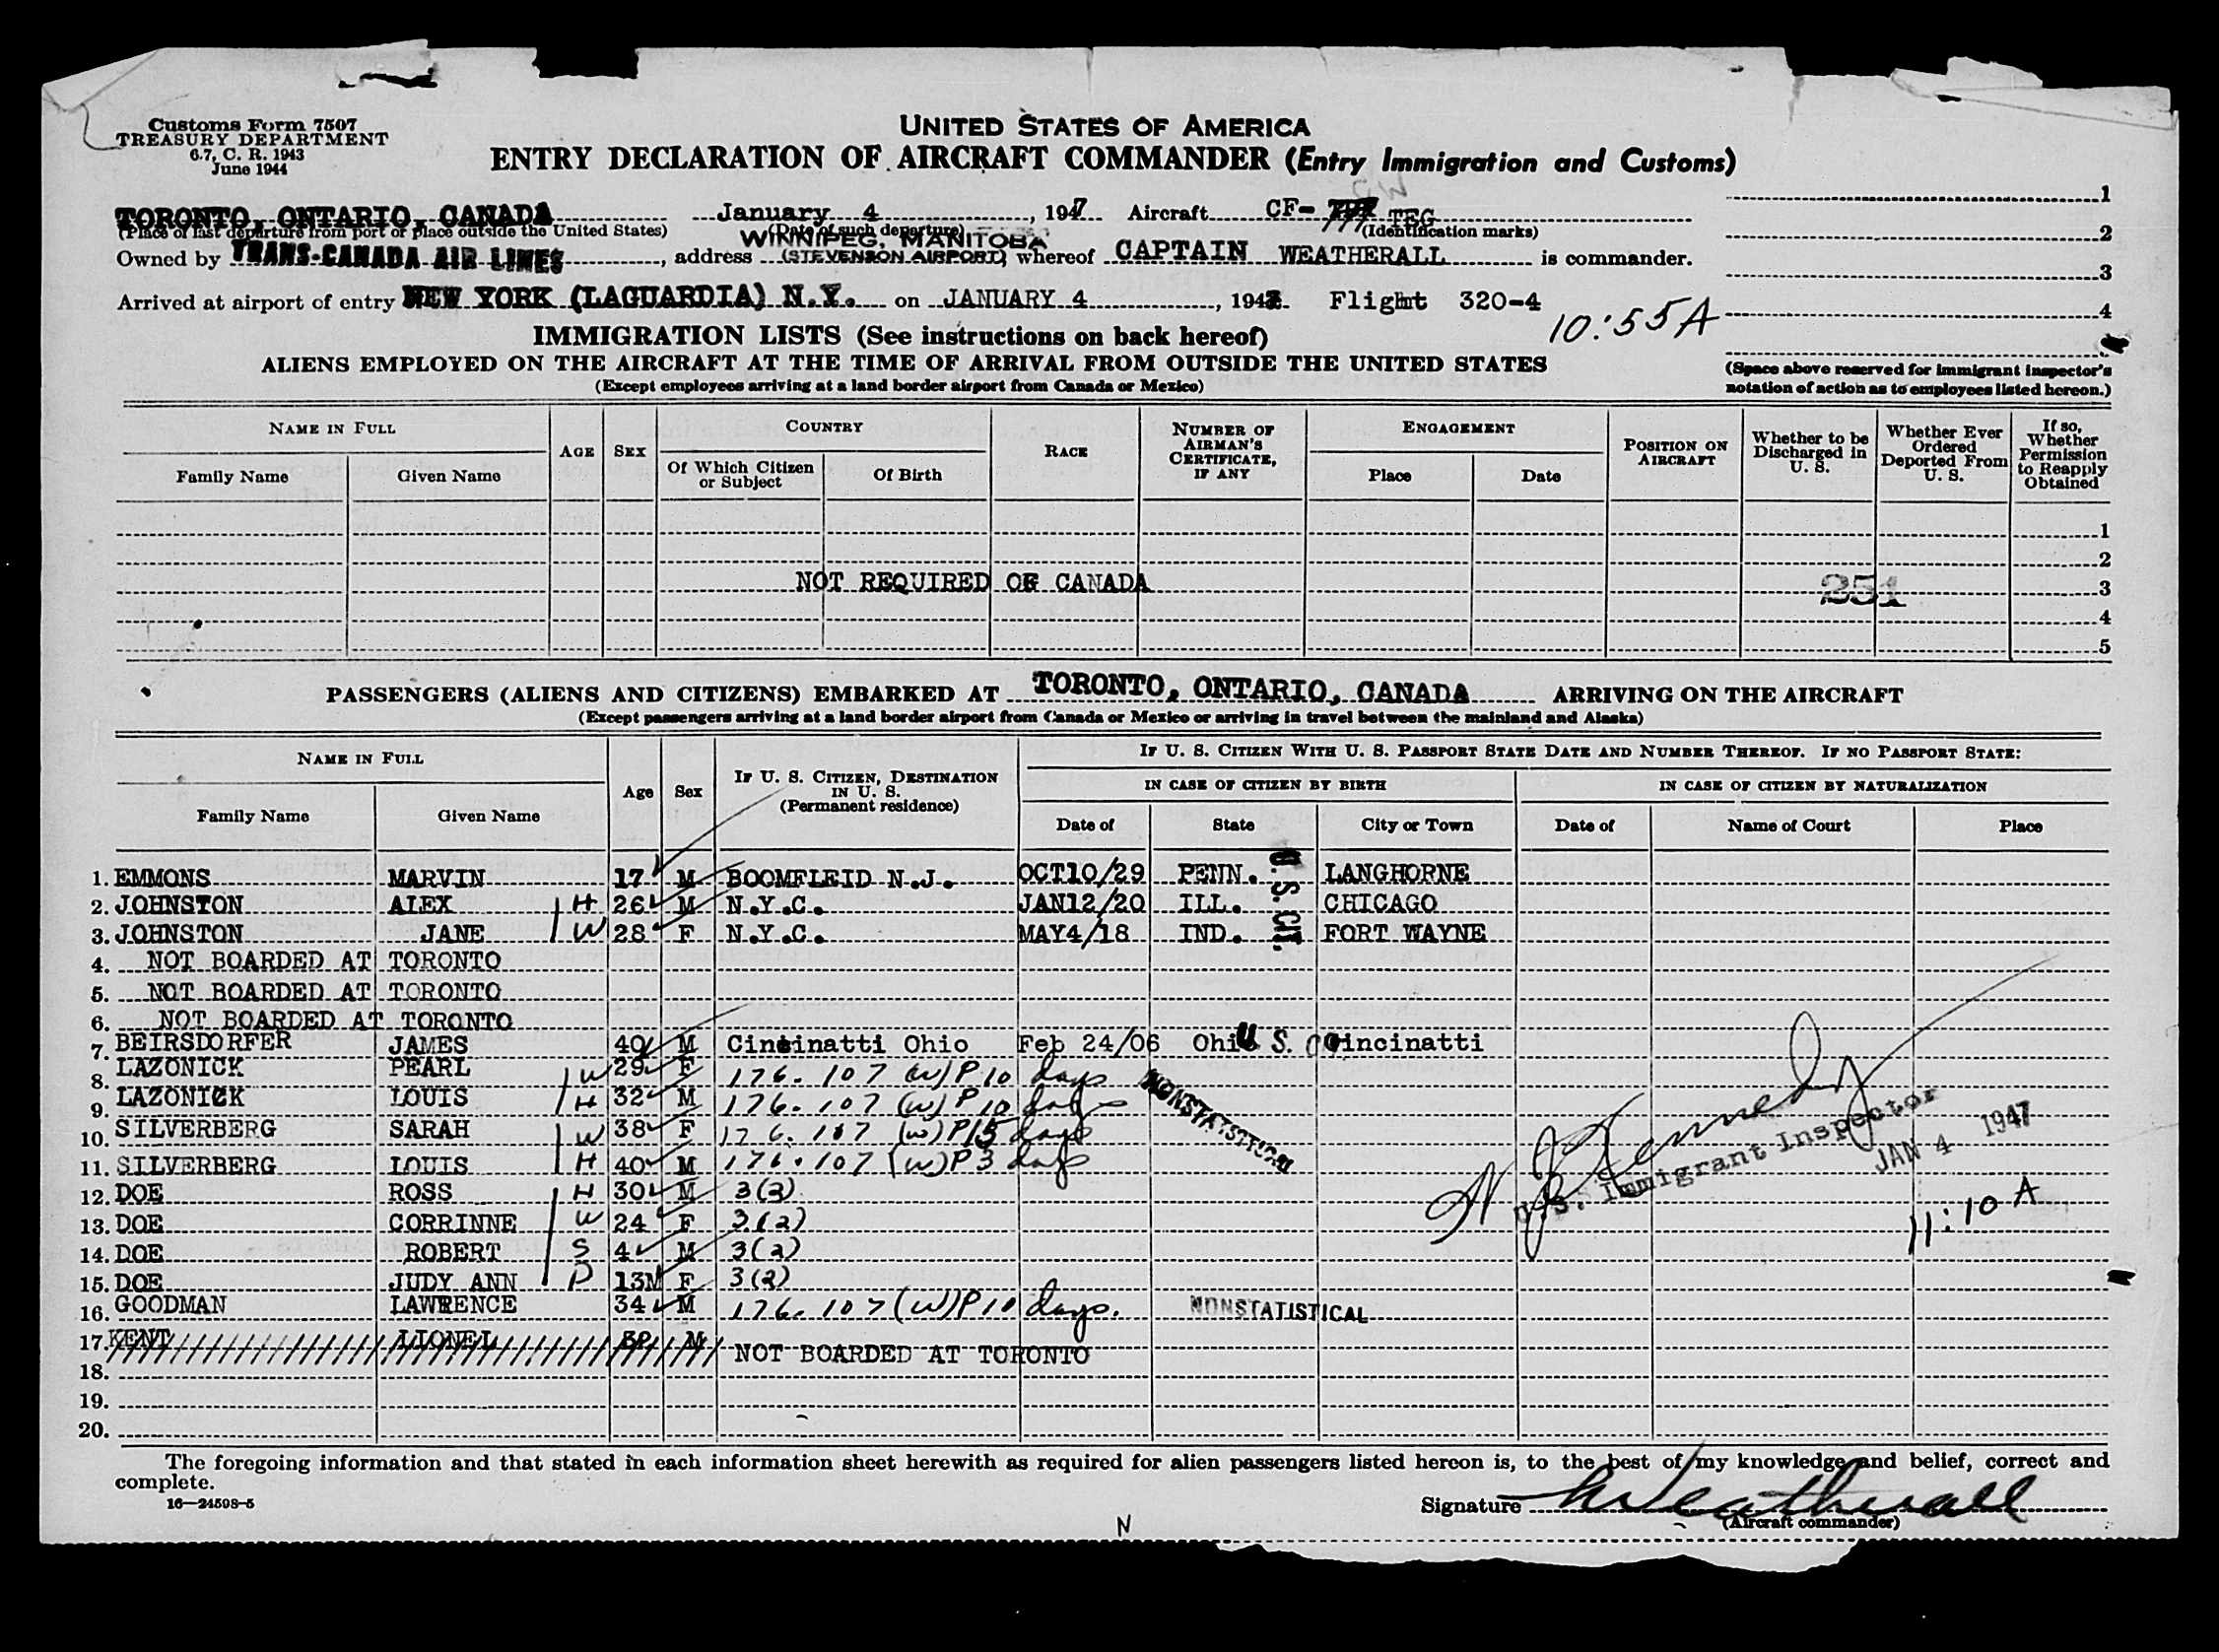 Customs Form 7507
TREASURY DEPARTMENT
6.7, C. R. 1943
June 1944
UNITED STATES OF AMERICA
ENTRY DECLARATION OF AIRCRAFT COMMANDER (Entry Immigration and Customs)
TORONTO, ONTARIO, CANADA January 4, 1947 Aircraft CF- TEG
(Place of last departure from port or place outside the United States) (Date of such departure) (Identification marks)
WINNIPEG, MANITOBA
Owned by TRANS-CANADA AIR LINES, address (STEVENSON AIRPORT), whereof CAPTAIN WEATHERALL is commander.
Arrived at airport of entry NEW YORK (LAGUARDIA) N.Y. on JANUARY 4, 1947 Flight 320-4
10:55A
1
2
3
4
(Space above reserved for immigrant inspector's notation of action as to employees listed hereon.)
IMMIGRATION LISTS (See instructions on back hereof)
ALIENS EMPLOYED ON THE AIRCRAFT AT THE TIME OF ARRIVAL FROM OUTSIDE THE UNITED STATES
(Except employees arriving at a land border airport from Canada or Mexico)
NAME IN FULL
Family Name Given Name
AGE SEX
COUNTRY
Of Which Citizen or Subject Of Birth
RACE
NUMBER OF AIRMAN'S CERTIFICATE, IF ANY
ENGAGEMENT
Place Date
POSITION ON AIRCRAFT
Whether to be Discharged in U. S.
Whether Ever Ordered Deported From U. S.
If so, Whether Permission to Reapply Obtained
1
2
NOT REQUIRED OF CANADA 251 3
4
5
PASSENGERS (ALIENS AND CITIZENS) EMBARKED AT TORONTO, ONTARIO, CANADA ARRIVING ON THE AIRCRAFT
(Except passengers arriving at a land border airport from Canada or Mexico or arriving in travel between the mainland and Alaska)
NAME IN FULL
Family Name Given Name
Age Sex
IF U. S. CITIZEN, DESTINATION IN U. S. (Permanent residence)
IF U. S. CITIZEN WITH U. S. PASSPORT STATE DATE AND NUMBER THEREOF. IF NO PASSPORT STATE:
IN CASE OF CITIZEN BY BIRTH IN CASE OF CITIZEN BY NATURALIZATION
Date of State City or Town Date of Name of Court Place
1. EMMONS MARVIN 17 M BOOMFLEID N.J. OCT10/29 PENN. LANGHORNE
2. JOHNSTON ALEX H 26 M N.Y.C. JAN12/20 ILL. CHICAGO
3. JOHNSTON JANE W 28 F N.Y.C. MAY4/18 IND. FORT WAYNE
U.S. CIT.
4. NOT BOARDED AT TORONTO
5. NOT BOARDED AT TORONTO
6. NOT BOARDED AT TORONTO
7. BEIRSDORFER JAMES 40 M Cincinatti Ohio Feb 24/06 Ohio U.S. Cincinatti
8. LAZONICK PEARL W 29 F 176.107 (W) P 10 days
9. LAZONICK LOUIS H 32 M 176.107 (W) P 10 days
10. SILVERBERG SARAH W 38 F 176.107 (W) P 15 days
11. SILVERBERG LOUIS H 40 M 176.107 (W) P 3 days
NONSTATISTICAL
12. DOE ROSS H 30 M 3(2)
13. DOE CORRINNE W 24 F 3(2)
14. DOE ROBERT S 4 M 3(2)
15. DOE JUDY ANN D 13M F 3(2)
16. GOODMAN LAWRENCE 34 M 176.107 (W) P 10 days. NONSTATISTICAL
17. KENT LIONEL M NOT BOARDED AT TORONTO
18.
19.
20.
Kennedy
U.S. Immigrant Inspector
JAN 4 1947
11:10 A
The foregoing information and that stated in each information sheet herewith as required for alien passengers listed hereon is, to the best of my knowledge and belief, correct and
complete.
16—24598-5
Signature Weatherall
(Aircraft commander)
N